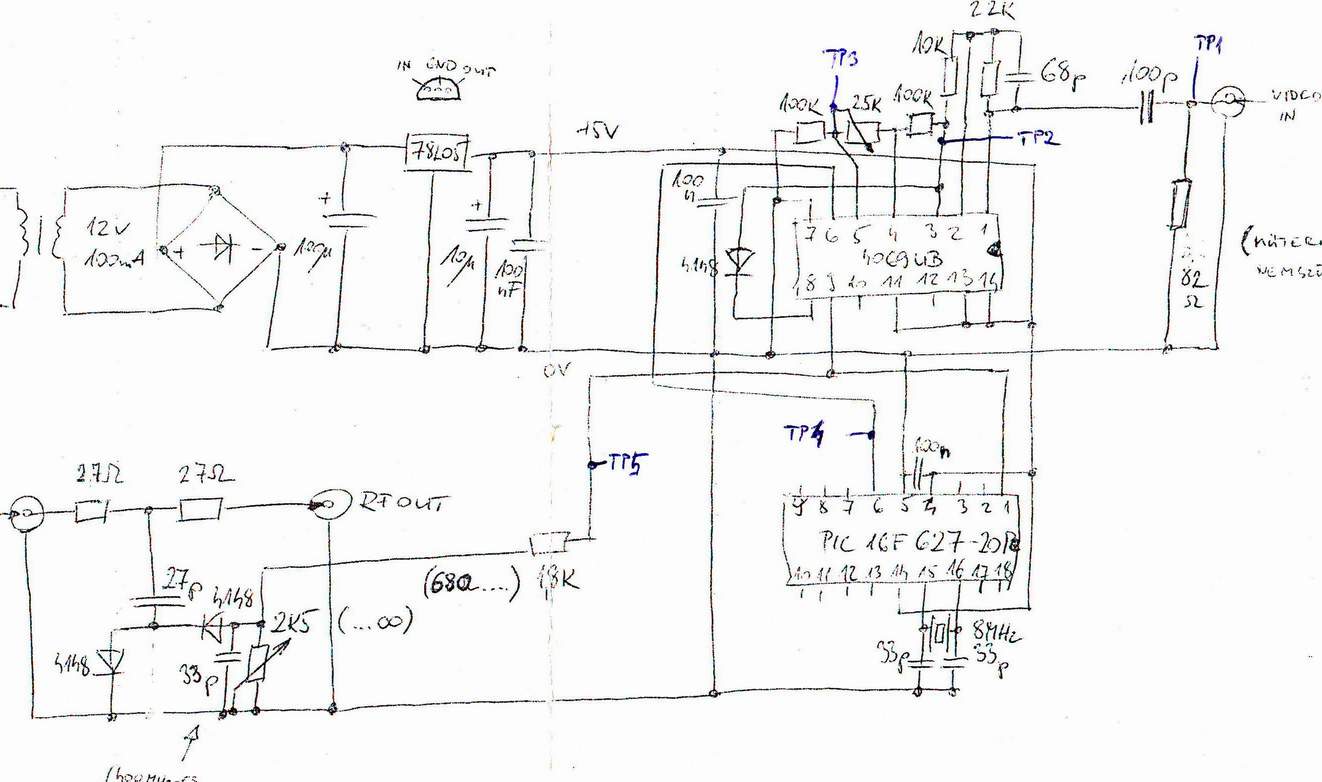 22K
10K
TP3
TP1
IN GND OUT
68p
100p
VIDEO
IN
100K
25K
100K
+5V
TP2
78L05
100
n
12V
100mA
+
-
+
100µ
+
10µ
100
nF
7 6 5 4 3 2 1
4069UB
4148
8 9 10 11 12 13 14
82
Ω
0V
TP4
100n
TP5
27Ω
27Ω
RF OUT
9 8 7 6 5 4 3 2 1
PIC 16F 627-20P
10 11 12 13 14 15 16 17 18
(680....) 18K
27p
4148
2K5 (...∞)
8MHz
33p
33p
4148
33p